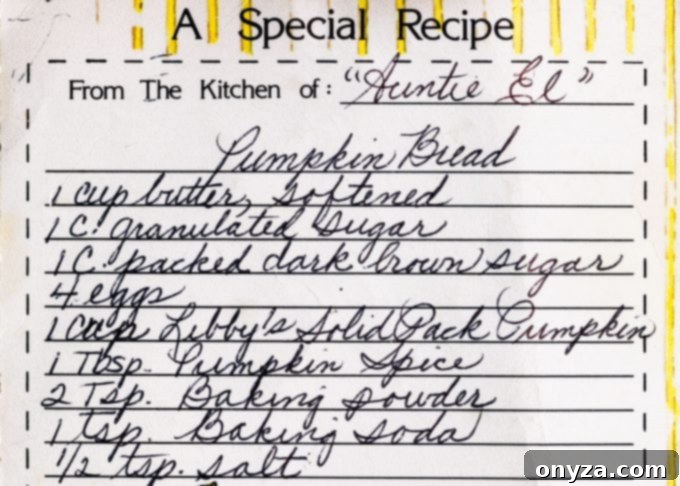 A Special Recipe
From The Kitchen of: "Auntie El"
Pumpkin Bread
1 cup butter, softened
1 C. granulated sugar
1 C. packed dark brown sugar
4 eggs
1 cup Libby's Solid Pack Pumpkin
1 Tbsp. Pumpkin Spice
2 Tsp. Baking powder
1 tsp. Baking soda
1/2 tsp. salt
onyza.com